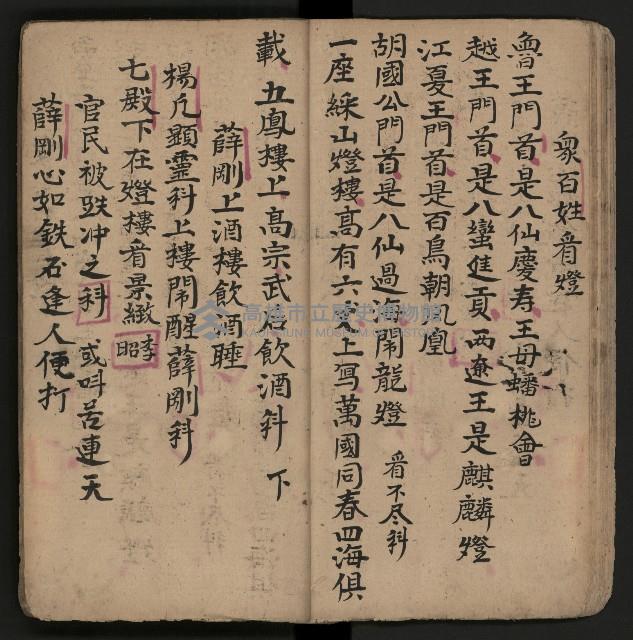 衆百姓看燈
魯王門首是八仙慶寿王母蟠桃會
越王門首是八蠻進貢两遼王是麒麟燈
江夏王門首是百鳥朝凤凰
胡國公門首是八仙過海鬧龍燈 看不尽科
一座綵山燈楼髙有六丈上写萬國同春四海俱
載 五鳳楼上高宗武后飲酒科 下
薛剛上酒楼飲酒睡
楊凡顕灵科上楼鬧醒薛剛科
七殿下在燈楼看景緻 李昭
官民被跌冲之科 或叫苦連天
薛剛心如鉄石逢人便打
高雄市立歷史博物館
KAOHSIUNG MUSEUM OF HISTORY